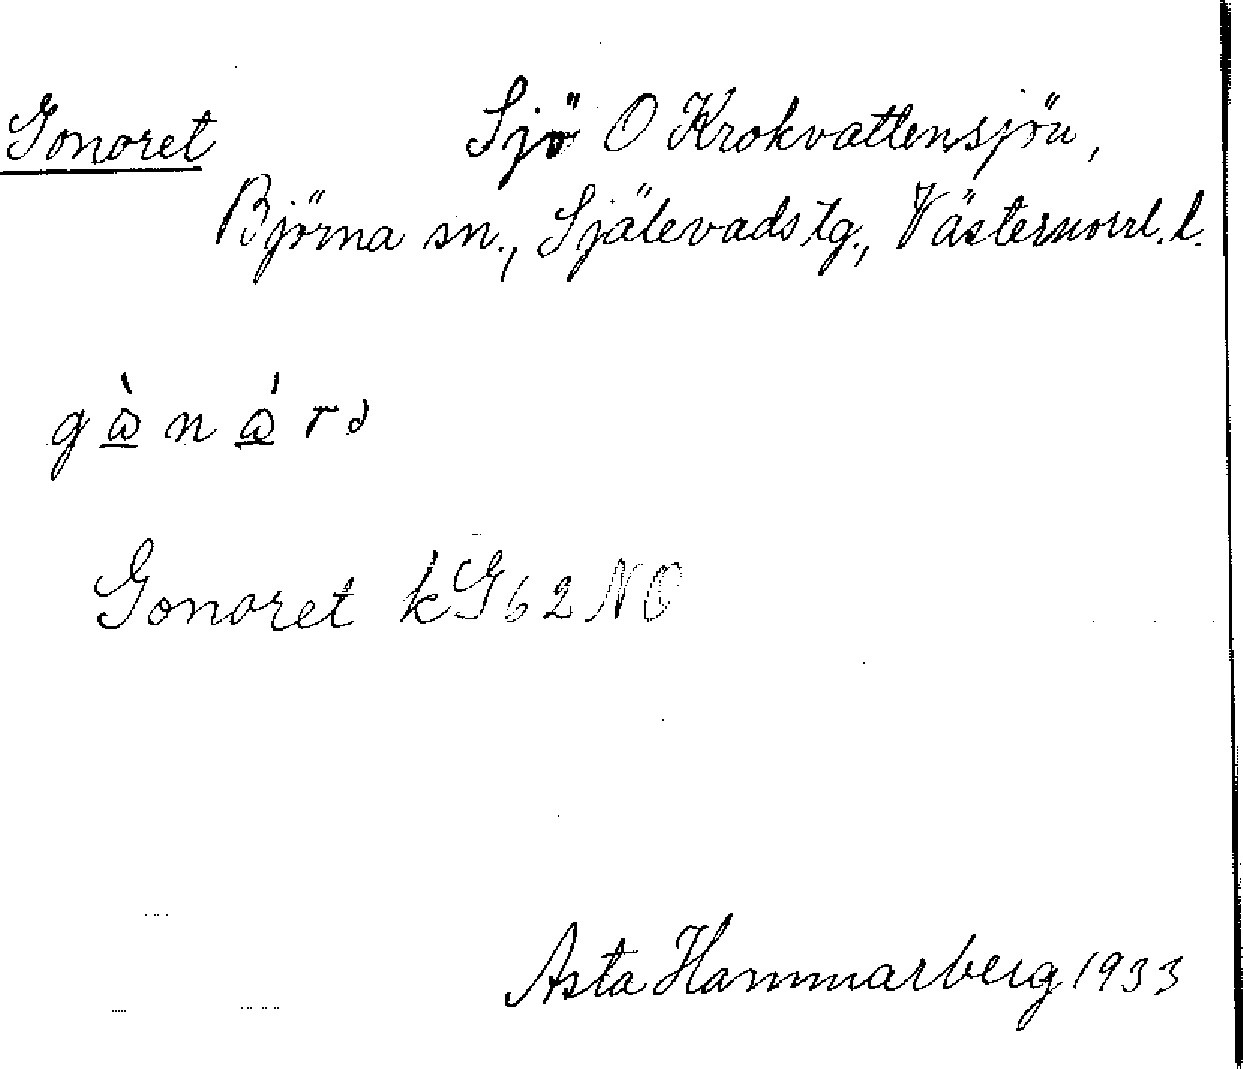 Gonoret Sjö O Krokvattensjön,
Björna sn., Själevads tg., Västernorrl. l.
Gonoret kG62NO
Asta Hammarberg 1933